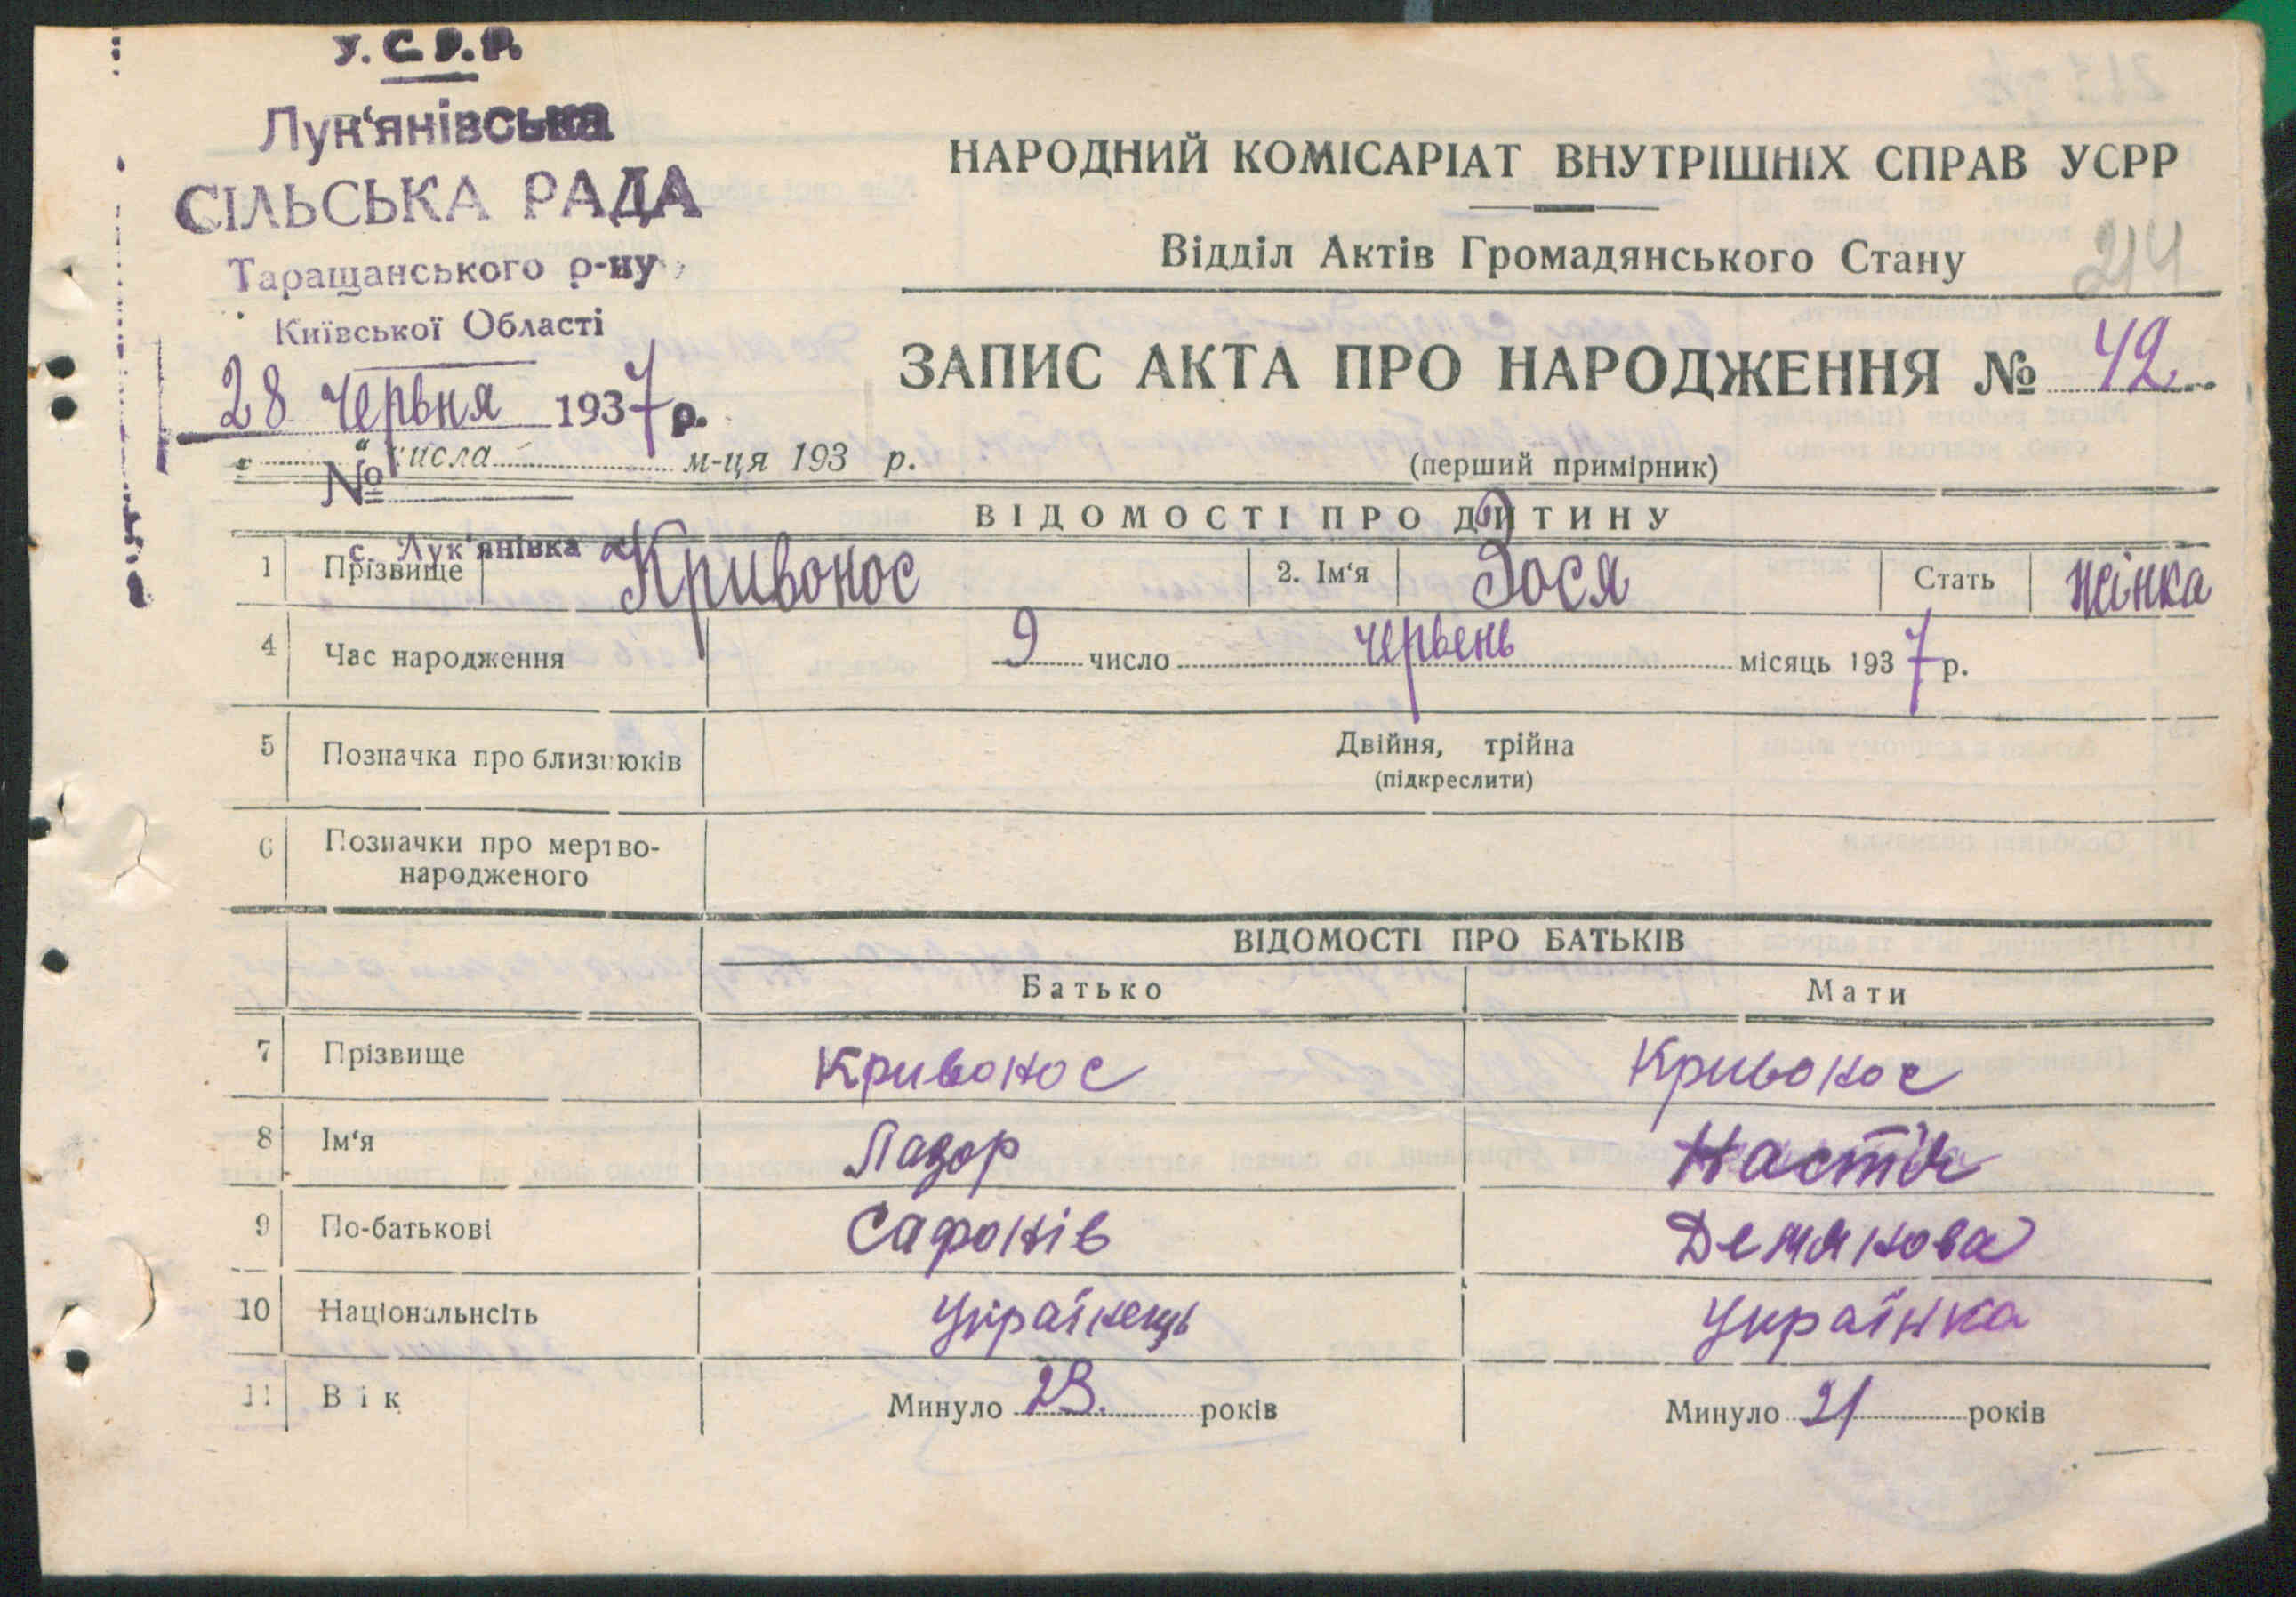 У.С.Р.Р.
Лук'янівська
СІЛЬСЬКА РАДА
Таращанського р-ну
Київської Області
28 червня 1937 р.
числа м-ця 193 р.
№
с. Лук'янівка
НАРОДНИЙ КОМІСАРІАТ ВНУТРІШНІХ СПРАВ УСРР
Відділ Актів Громадянського Стану
214
ЗАПИС АКТА ПРО НАРОДЖЕННЯ № 42
(перший примірник)
ВІДОМОСТІ ПРО ДИТИНУ
1 Прізвище Кривонос 2. Ім'я Зося Стать жінка
4 Час народження 9 число червень місяць 1937 р.
5 Позначка про близнюків Двійня, трійна
(підкреслити)
6 Позначки про мертво-
народженого
ВІДОМОСТІ ПРО БАТЬКІВ
Батько Мати
7 Прізвище Кривонос Кривонос
8 Ім'я Лазор Настя
9 По-батькові Сафонів Демянова
10 Національнсіть Українець Українка
11 Вік Минуло 23. років Минуло 21 років